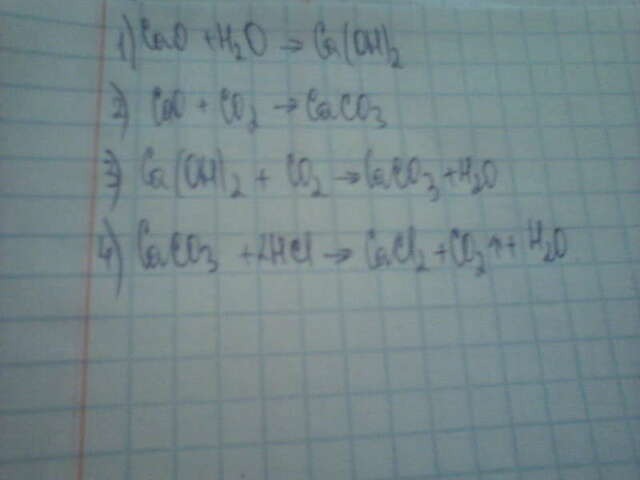 1) CaO + H₂O → Ca(OH)₂
2) CaO + CO₂ → CaCO₃
3) Ca(OH)₂ + CO₂ → CaCO₃ + H₂O
4) CaCO₃ + 2HCl → CaCl₂ + CO₂↑ + H₂O